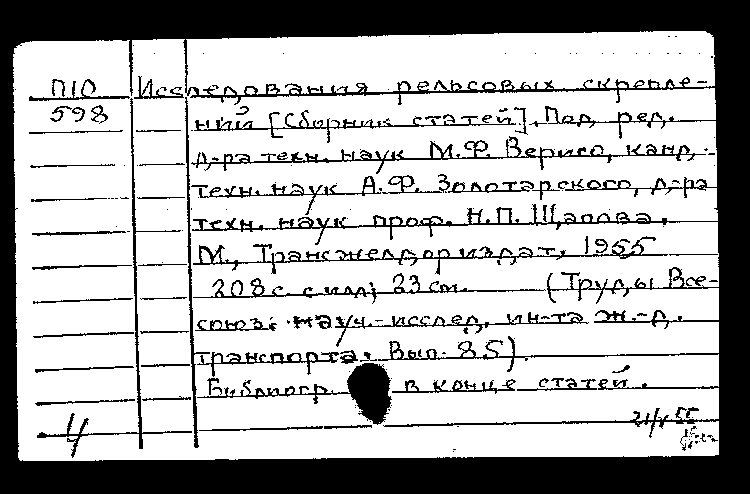 П10 Исследования рельсовых скрепле-
598 ний [Сборник статей]. Под ред.
д-ра техн. наук М.Ф. Вериго, канд.
техн. наук А.Ф. Золотарского, д-ра
техн. наук проф. Н.П. Щапова.
М., Трансжелдориздат, 1955
208 с. с илл; 23 см. (Труды Все-
союз. науч.-исслед. ин-та ж.-д.
транспорта. Вып. 85).
Библиогр. в конце статей.
4 21/V 55